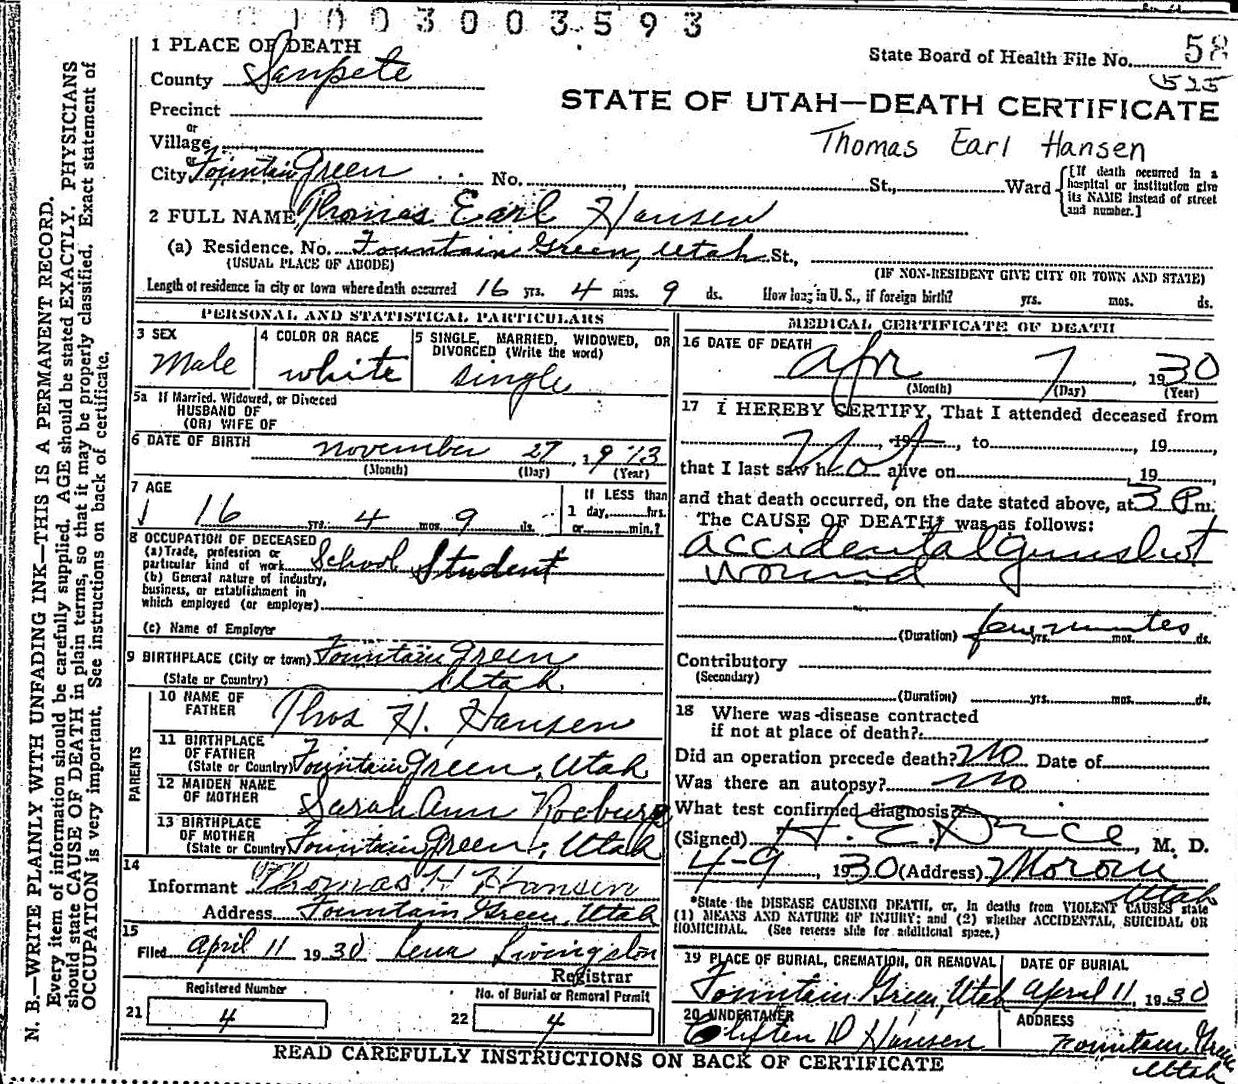 003003593
State Board of Health File No. 58
525
STATE OF UTAH—DEATH CERTIFICATE
Thomas Earl Hansen
1 PLACE OF DEATH
County Sanpete
Precinct
or
Village
or
City Fountain Green No. St., Ward
[If death occurred in a hospital or institution give its NAME instead of street and number.]
2 FULL NAME Thomas Earl Hansen
(a) Residence, No. Fountain Green, Utah St.,
(USUAL PLACE OF ABODE) (IF NON-RESIDENT GIVE CITY OR TOWN AND STATE)
Length of residence in city or town where death occurred 16 yrs. 4 mos. 9 ds. How long in U. S., if foreign birth? yrs. mos. ds.
PERSONAL AND STATISTICAL PARTICULARS
3 SEX
Male
4 COLOR OR RACE
white
5 SINGLE, MARRIED, WIDOWED, OR
DIVORCED (Write the word)
single
5a If Married, Widowed, or Divorced
HUSBAND OF
(OR) WIFE OF
6 DATE OF BIRTH
November 27, 1913
(Month) (Day) (Year)
7 AGE
16 yrs. 4 mos. 9 ds.
If LESS than
1 day, hrs.
or min.?
8 OCCUPATION OF DECEASED
(a) Trade, profession or
particular kind of work School Student
(b) General nature of industry,
business, or establishment in
which employed (or employer)
(c) Name of Employer
9 BIRTHPLACE (City or town) Fountain Green
(State or Country) Utah.
PARENTS
10 NAME OF
FATHER Thos H. Hansen
11 BIRTHPLACE
OF FATHER
(State or Country) Fountain Green, Utah
12 MAIDEN NAME
OF MOTHER Sarah Ann
13 BIRTHPLACE
OF MOTHER
(State or Country) Fountain Green, Utah
14
Informant Thomas H Hansen
Address Fountain Green, Utah
15
Filed April 11 1930 Lena Livingston
Registrar
Registered Number
21 4
No. of Burial or Removal Permit
22 4
MEDICAL CERTIFICATE OF DEATH
16 DATE OF DEATH
Apr 7, 1930
(Month) (Day) (Year)
17 I HEREBY CERTIFY, That I attended deceased from
Not, 19, to, 19
that I last saw h not alive on 19
and that death occurred, on the date stated above, at 3 P m.
The CAUSE OF DEATH* was as follows:
accidental gunshot
wound
(Duration) few minutes yrs. mos. ds.
Contributory
(Secondary)
(Duration) yrs. mos. ds.
18 Where was disease contracted
if not at place of death?
Did an operation precede death? No Date of
Was there an autopsy? no
What test confirmed diagnosis?
(Signed) H. E. , M. D.
4-9, 1930 (Address) Moroni
Utah
*State the DISEASE CAUSING DEATH, or, in deaths from VIOLENT CAUSES state
(1) MEANS AND NATURE OF INJURY; and (2) whether ACCIDENTAL, SUICIDAL OR
HOMICIDAL. (See reverse side for additional space.)
19 PLACE OF BURIAL, CREMATION, OR REMOVAL
Fountain Green, Utah
DATE OF BURIAL
April 11, 1930
20 UNDERTAKER
Cliften D Hansen
ADDRESS
Fountain Green
Utah
READ CAREFULLY INSTRUCTIONS ON BACK OF CERTIFICATE
N. B.—WRITE PLAINLY WITH UNFADING INK—THIS IS A PERMANENT RECORD.
Every item of information should be carefully supplied. AGE should be stated EXACTLY. PHYSICIANS
should state CAUSE OF DEATH in plain terms, so that it may be properly classified. Exact statement of
OCCUPATION is very important. See instructions on back of certificate.